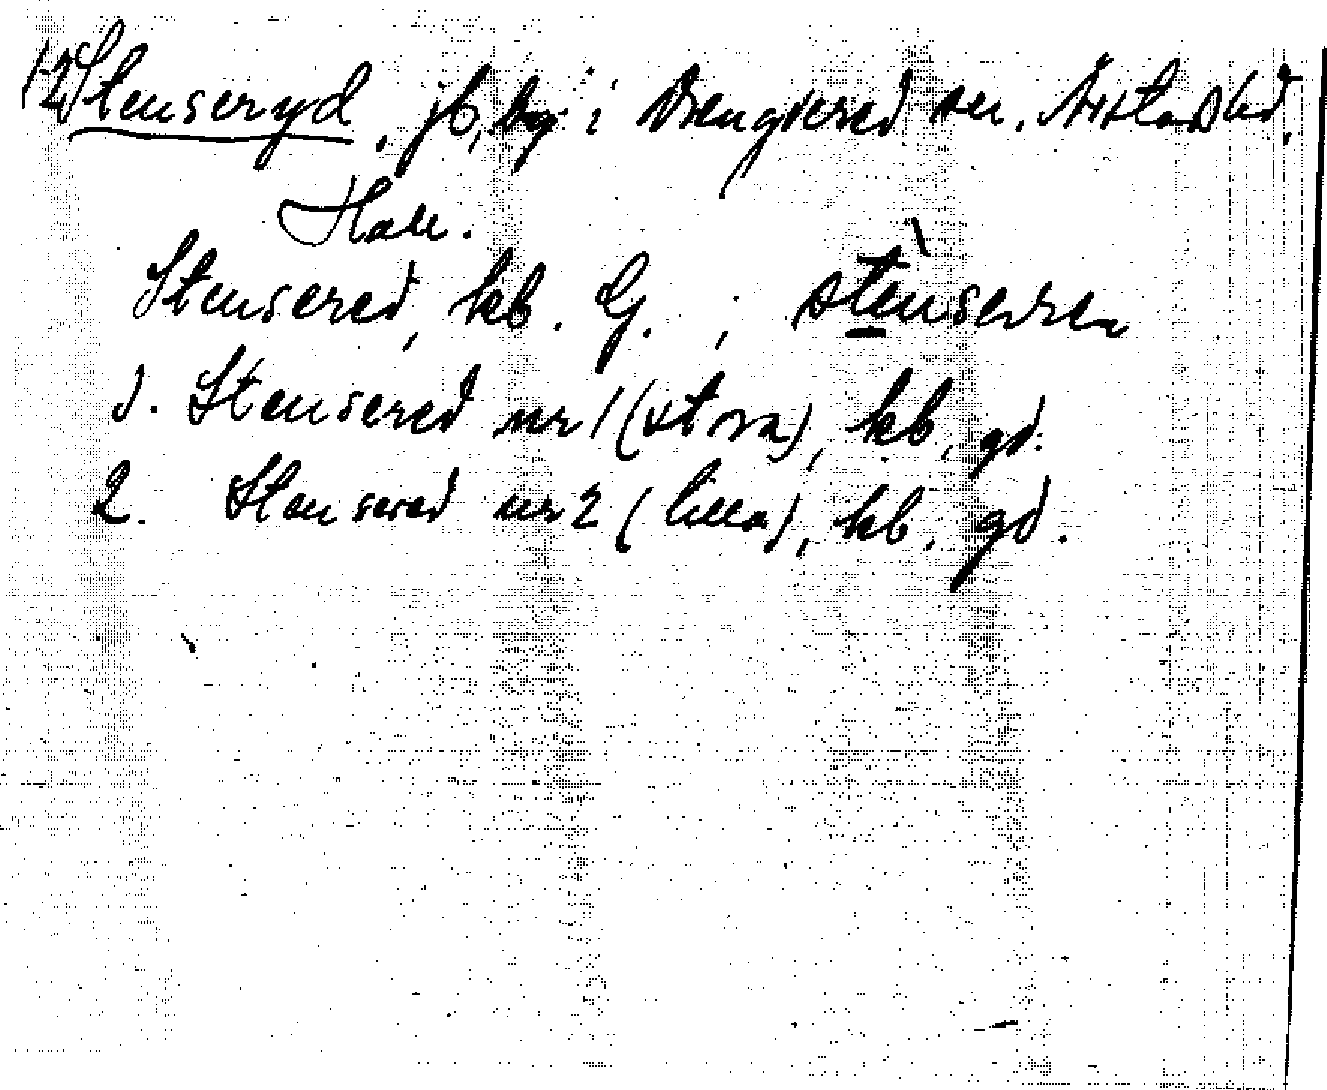 12 Stenseryd, jb, by i Drängsered sn. Årstads hd,
Hall.
Stensered, kb. G. ; stènserɛ
1. Stensered nr 1 (stora), kb, gd.
2. Stensered nr 2 (lilla), kb, gd.